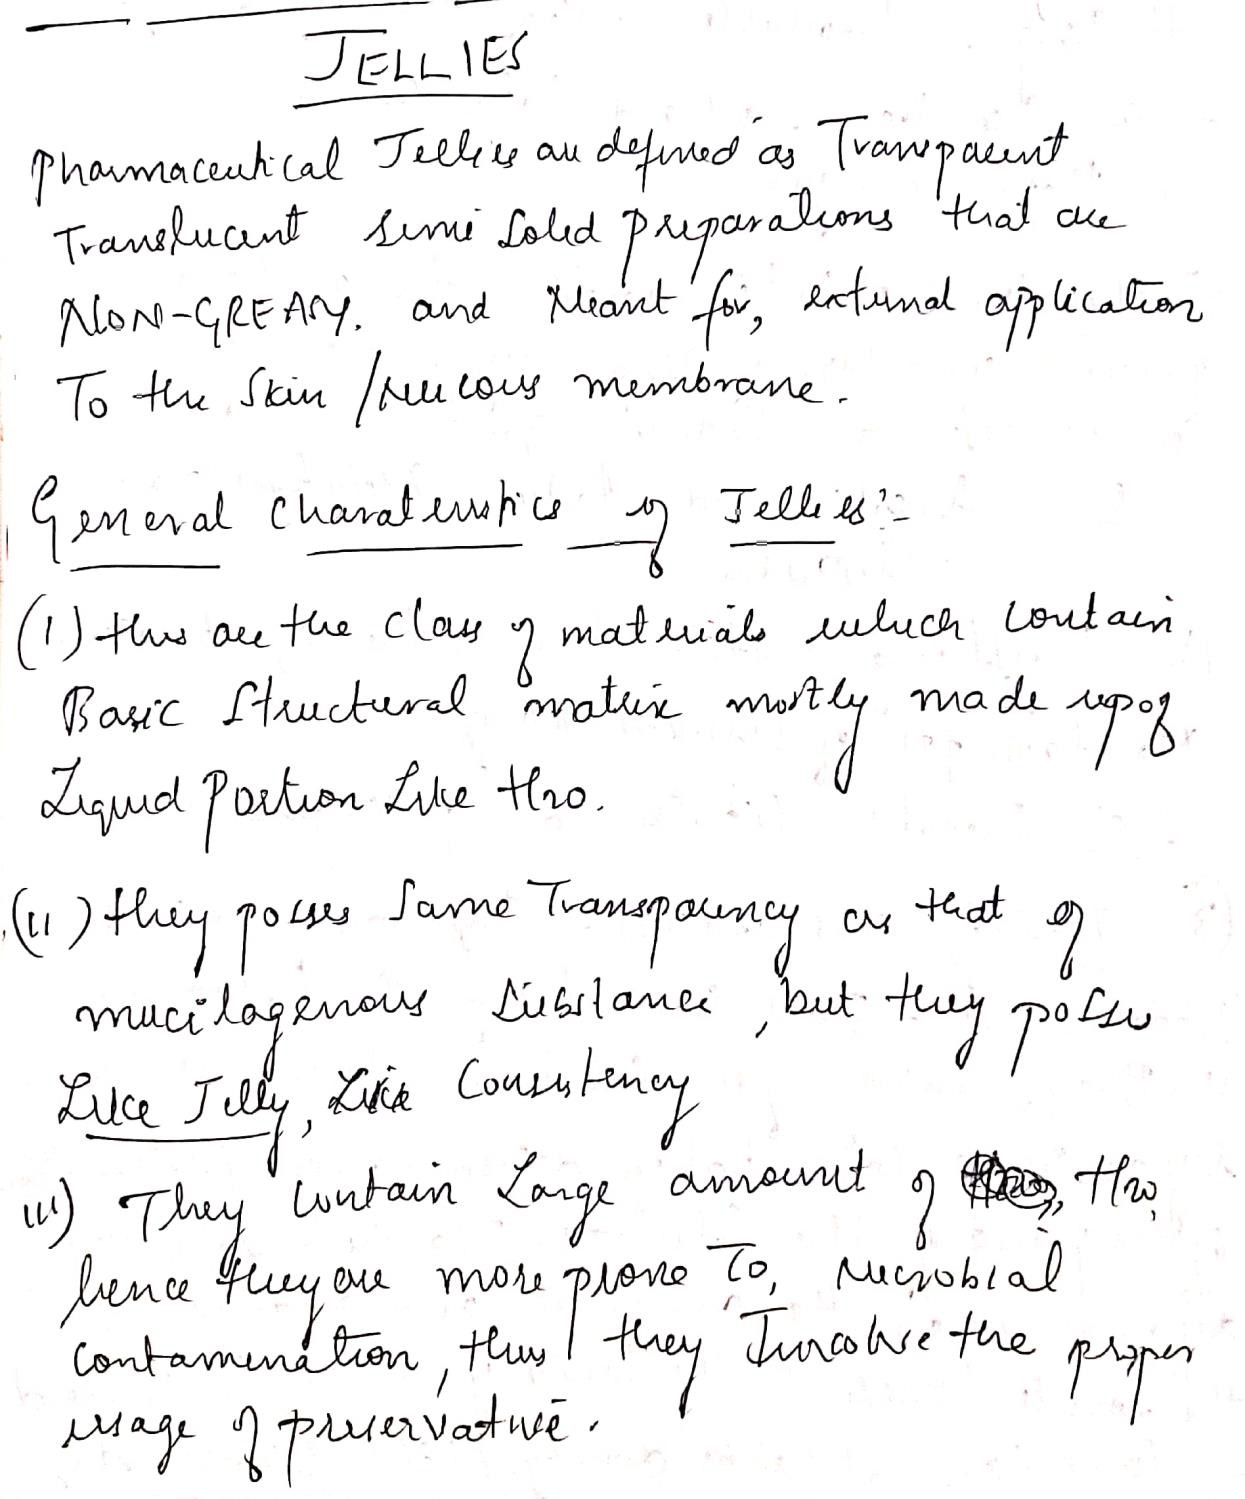 JELLIES
Pharmaceutical Jellies are defined as Transparent
Translucent semi solid preparations that are
NON-GREASY. and Meant for, external application
To the Skin / Mucous membrane.
General Charateristics of Jellies :-
(I) this are the class of materials which contain
Basic Structural matrix mostly made up of
Liquid Portion Like H2O.
(II) they posses Same Transparency as that of
mucilagenous Substance, but they posses
Like Jelly, Like Consistency
III) They contain Large amount of H2O,
hence they are more prone To, Microbial
contamination, thus they Involve the proper
usage of preservative.